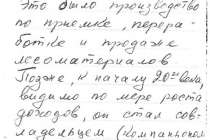 Это было производство
по приемке, перера-
ботке и продаже
лесоматериалов
Позже, к началу 20го века,
видимо по мере роста
доходов, он стал сов-
ладельцем (компаньоном